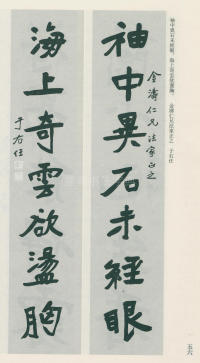 袖中異石未經眼
金濤仁兄法家正之
海上奇雲欲盪胸
于右任
袖中異石未經眼，海上奇雲欲盪胸。　金濤仁兄法家正之　于右任
五六